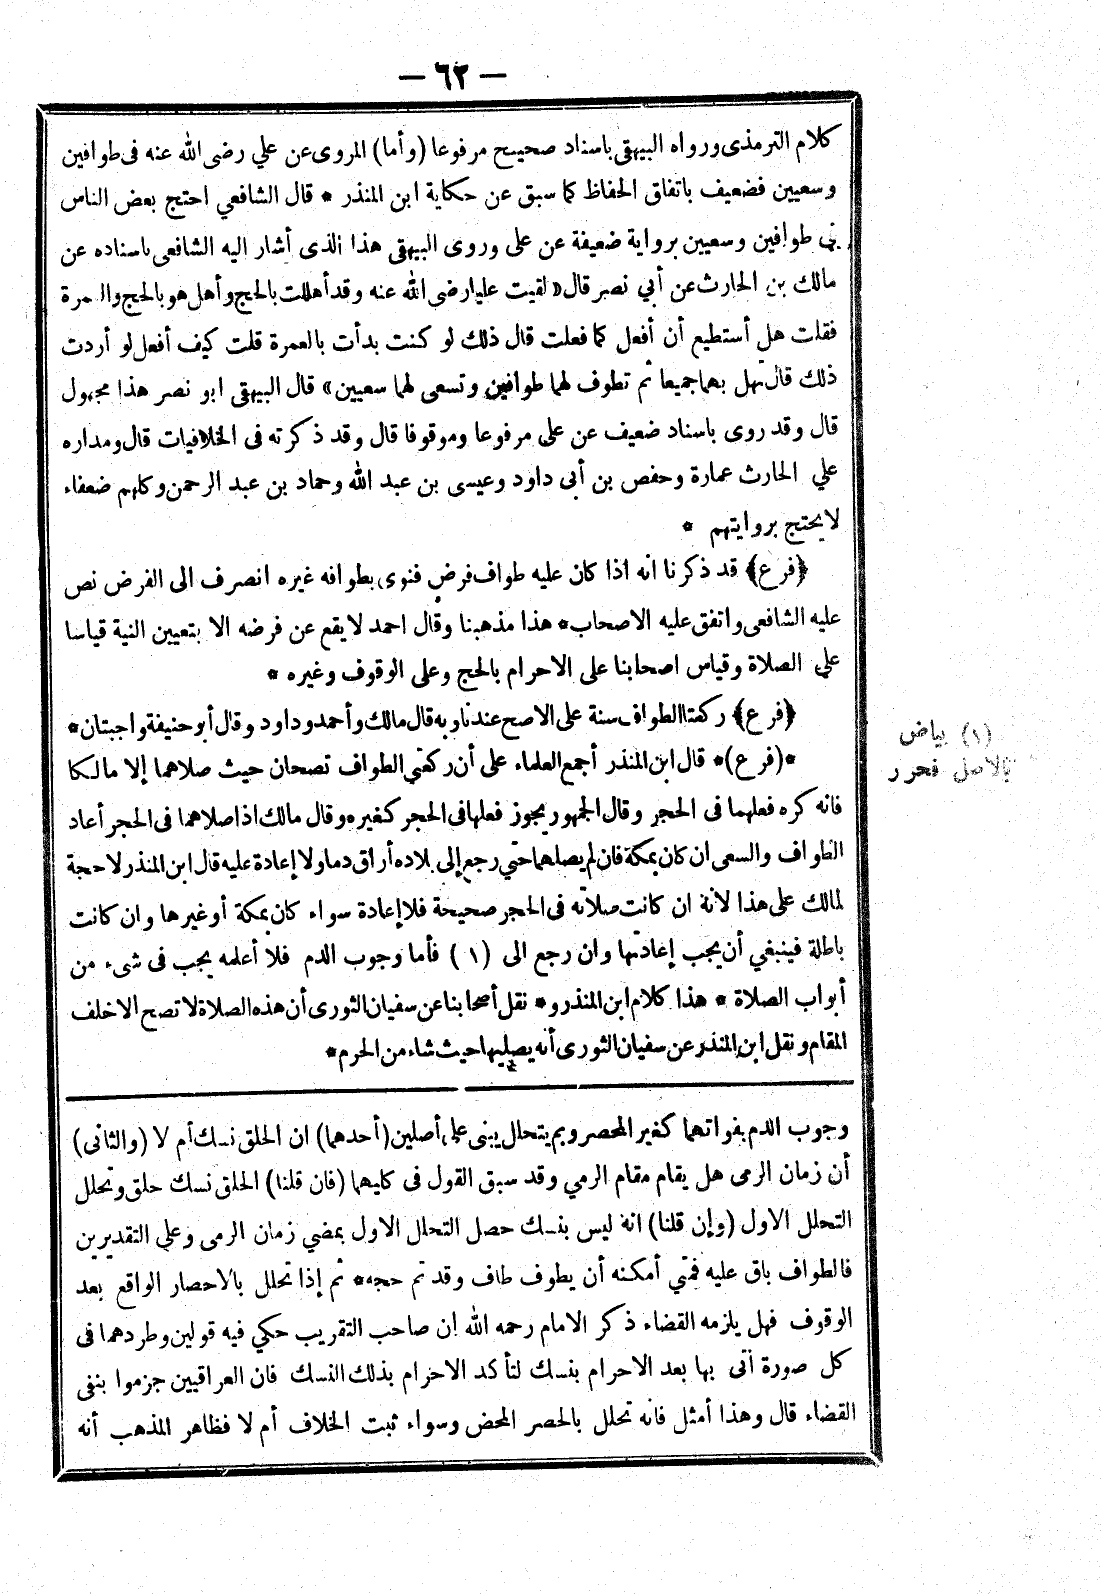 — ٦٢ —
كلام الترمذى ورواه البيهقى باسناد صحيح مرفوعا (وأما) المروى عن علي رضى الله عنه فى طوافين
وسعيين فضعيف باتفاق الحفاظ كما سبق عن حكاية ابن المنذر * قال الشافعي احتج بعض الناس
فى طوافين وسعيين برواية ضعيفة عن على وروى البيهقى هذا الذى أشار اليه الشافعى باسناده عن
مالك بن الحارث عن أبي نصر قال «لقيت عليا رضى الله عنه وقد أهللت بالحج وأهل هو بالحج والعمرة
فقلت هل أستطيع أن أفعل كما فعلت قال ذلك لو كنت بدأت بالعمرة قلت كيف أفعل لو أردت
ذلك قال تهل بهما جميعا ثم تطوف لهما طوافين وتسعى لهما سعيين» قال البيهقى ابو نصر هذا مجهول
قال وقد روى باسناد ضعيف عن على مرفوعا وموقوفا قال وقد ذكرته فى الخلافيات قال ومداره
علي الحارث عمارة وحفص بن أبى داود وعيسى بن عبد الله وحماد بن عبد الرحمن وكلهم ضعفاء
لا يحتج بروايتهم *
﴿فرع﴾ قد ذكرنا انه اذا كان عليه طواف فرض فنوى بطوافه غيره انصرف الى الفرض نص
عليه الشافعى واتفق عليه الاصحاب* هذا مذهبنا وقال احمد لا يقع عن فرضه الا بتعيين النية قياسا
علي الصلاة وقياس اصحابنا على الاحرام بالحج وعلى الوقوف وغيره *
﴿فرع﴾ ركعتا الطواف سنة على الاصح عندنا وبه قال مالك وأحمد وداود وقال أبو حنيفة واجبتان*
*(فرع)* قال ابن المنذر أجمع العلماء على أن ركعتي الطواف تصحان حيث صلاهما إلا مالكا
فانه كره فعلهما فى الحجر وقال الجمهور يجوز فعلها فى الحجر كغيره وقال مالك اذا صلاهما فى الحجر أعاد
الطواف والسعى ان كان بمكة فان لم يصلهما حتى رجع إلى بلاده أراق دما ولا إعادة عليه قال ابن المنذر لا حجة
لمالك على هذا لأنه ان كانت صلاته فى الحجر صحيحة فلا إعادة سواء كان بمكة أو غيرها وان كانت
باطلة فينبغي أن يجب إعادتها وان رجع الى (١) فأما وجوب الدم فلا أعلمه يجب فى شىء من
أبواب الصلاة * هذا كلام ابن المنذر و* نقل أصحابنا عن سفيان الثورى أن هذه الصلاة لا تصح الا خلف
المقام ونقل ابن المنذر عن سفيان الثورى أنه يصليها حيث شاء من الحرم*
(١) بياض
بالاصل فحرر
وجوب الدم بفواتهما كغير المحصر وبم يتحلل يبنى على أصلين (أحدهما) ان الحلق نسك أم لا (والثانى)
أن زمان الرمى هل يقام مقام الرمي وقد سبق القول فى كليهما (فان قلنا) الحلق نسك حلق وتحلل
التحلل الاول (وإن قلنا) انه ليس بنسك حصل التحلل الاول بمضي زمان الرمى وعلي التقديرين
فالطواف باق عليه فمتى أمكنه أن يطوف طاف وقد تم حجه* ثم إذا تحلل بالاحصار الواقع بعد
الوقوف فهل يلزمه القضاء ذكر الامام رحمه الله ان صاحب التقريب حكي فيه قولين وطردهما فى
كل صورة أتى بها بعد الاحرام بنسك لتأكد الاحرام بذلك النسك فان العراقيين جزموا بنفى
القضاء قال وهذا أمثل فانه تحلل بالحصر المحض وسواء ثبت الخلاف أم لا فظاهر المذهب أنه